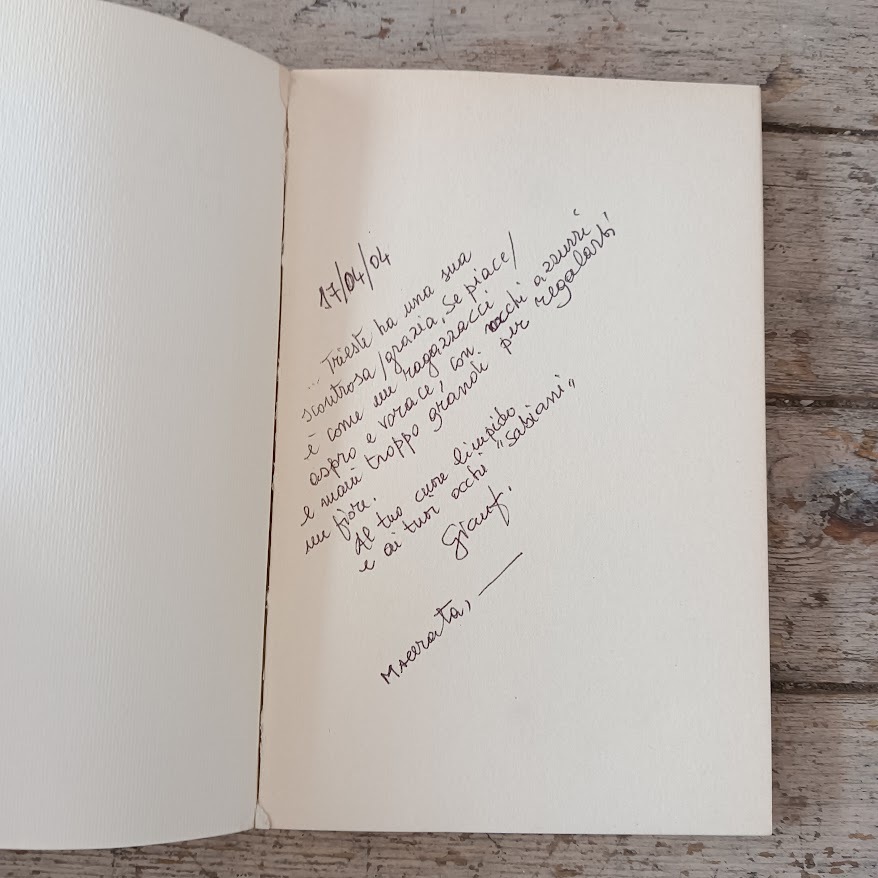 17/04/04
... Trieste ha una sua
scontrosa/grazia. Se piace/
è come un ragazzacci
aspro e vorace, con occhi azzurri
e mani troppo grandi per regalarti
un fiore.
Al tuo cuore limpido
e ai tuoi occhi "sabiani"
Macerata, —